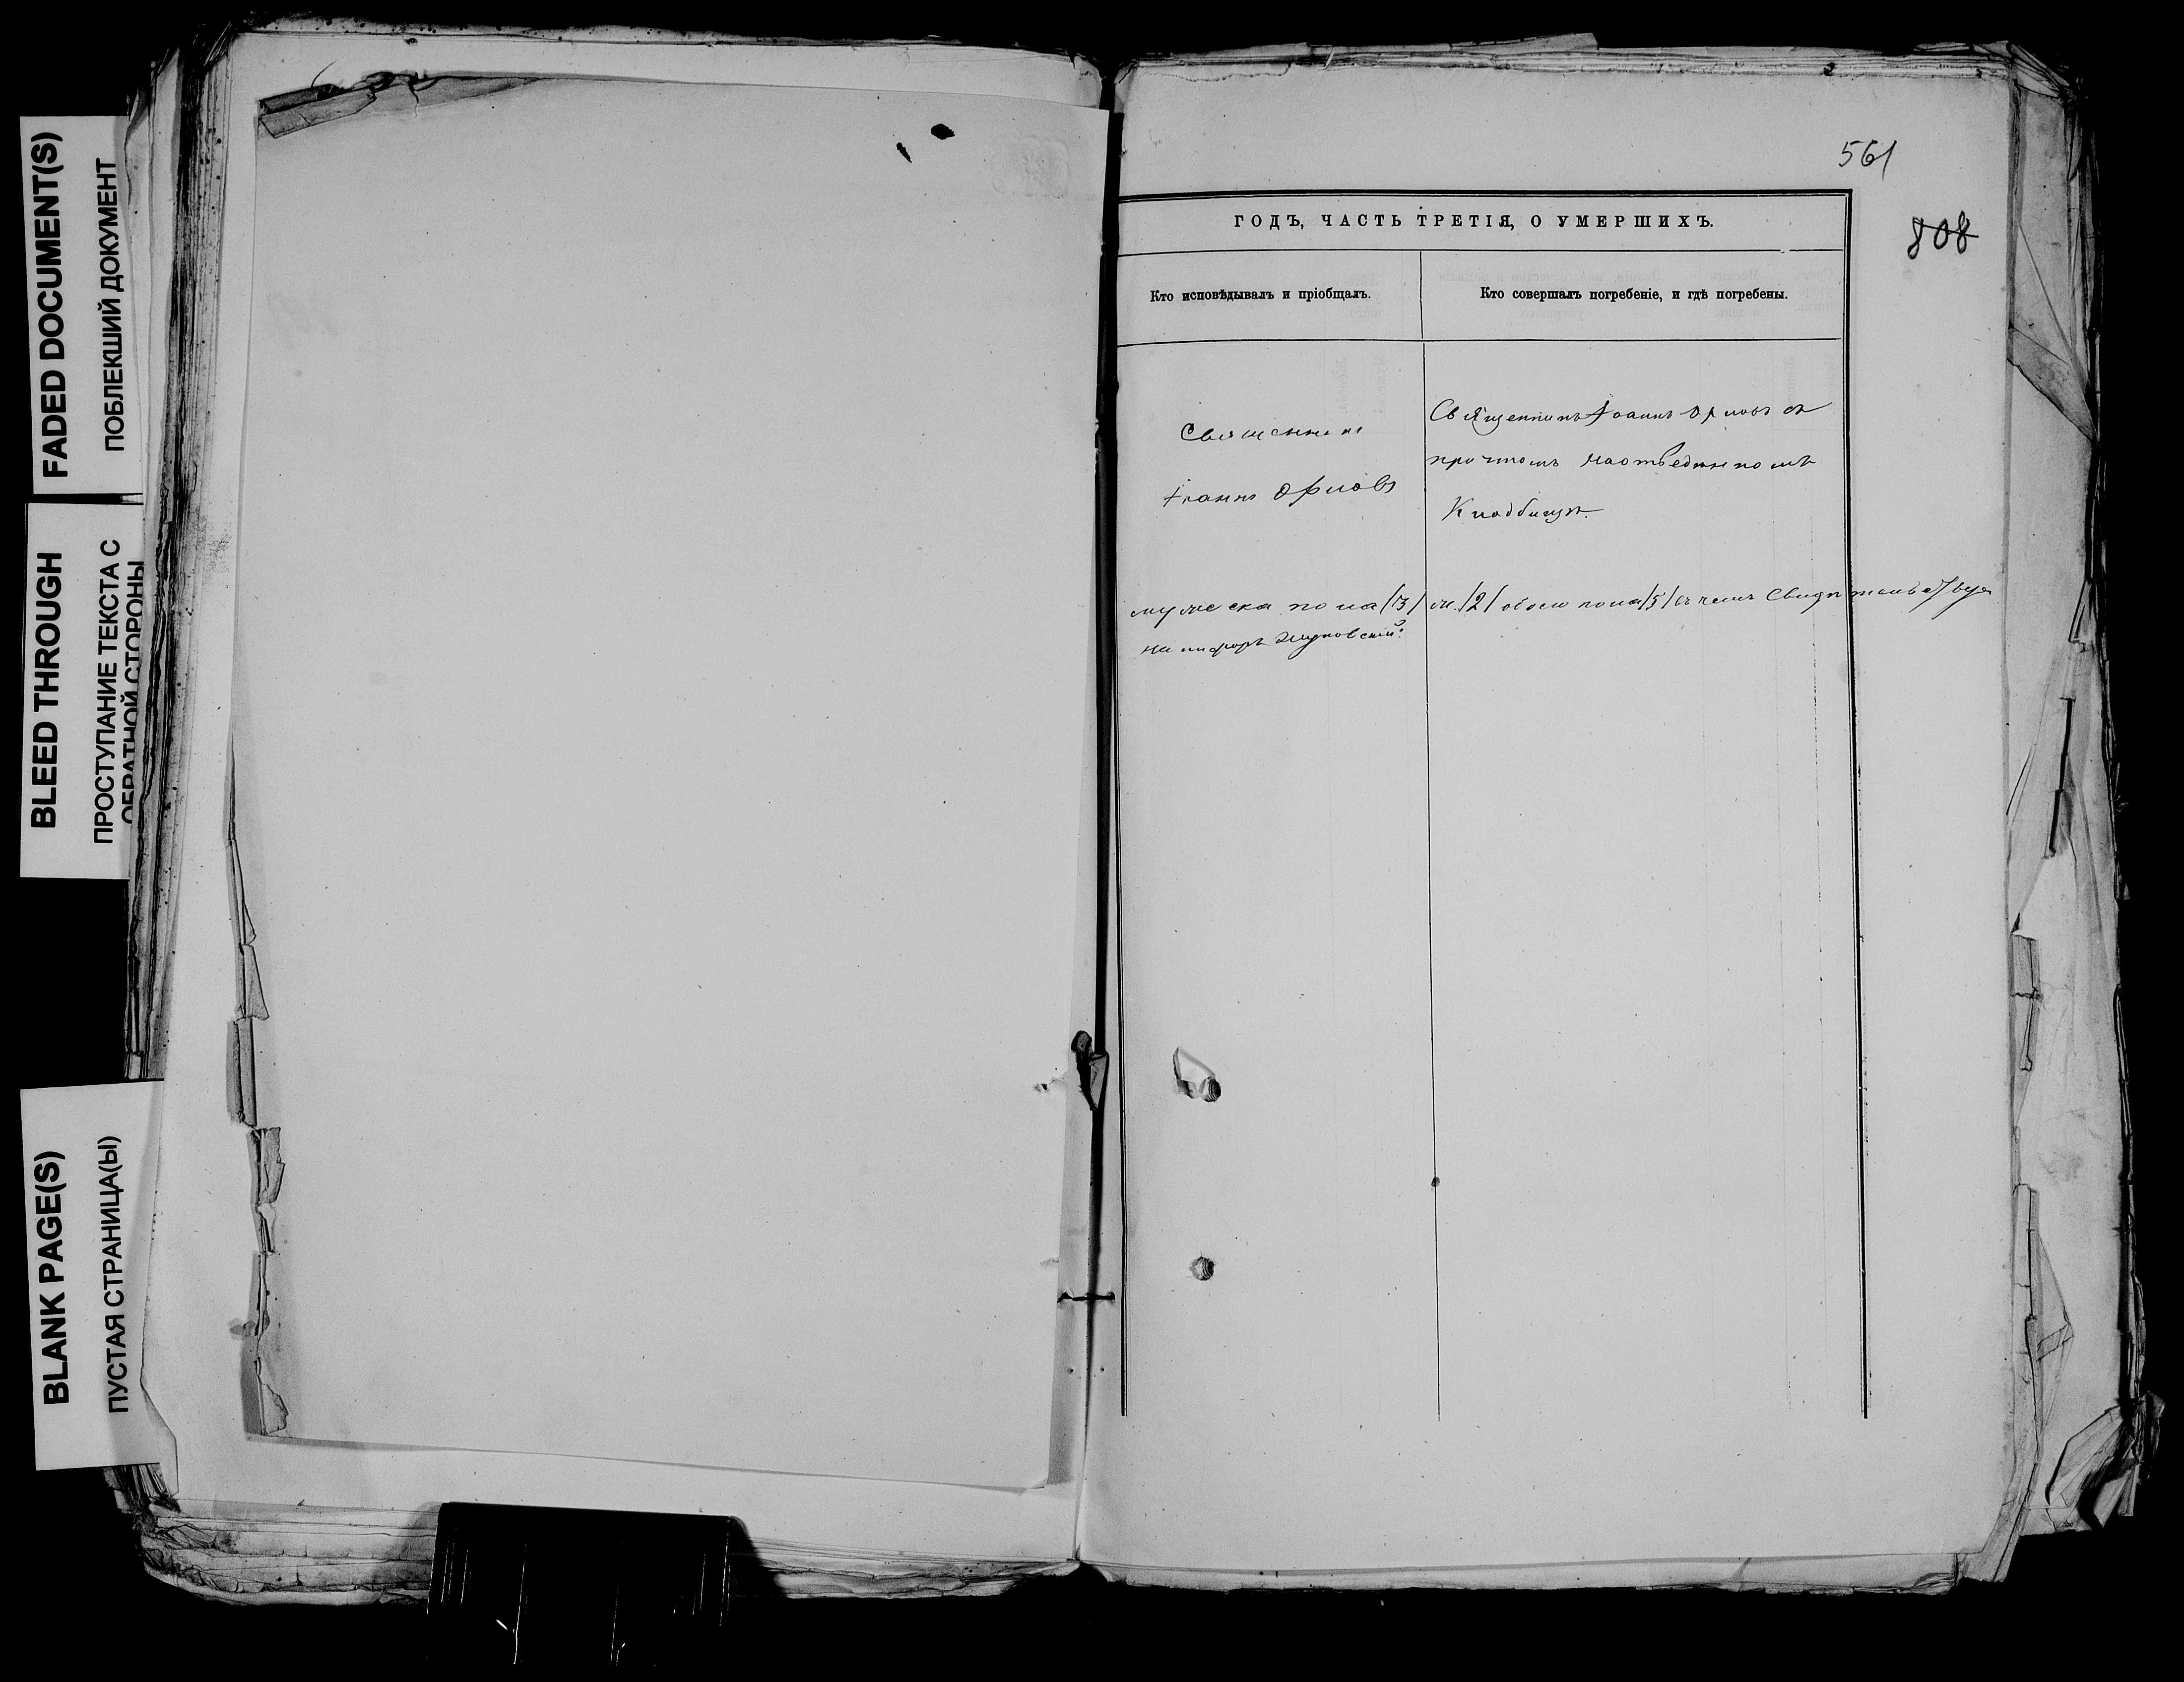 FADED DOCUMENT(S)
ПОБЛЕКШИЙ ДОКУМЕНТ
BLEED THROUGH
ПРОСТУПАНИЕ ТЕКСТА С
ОБРАТНОЙ СТОРОНЫ
BLANK PAGE(S)
ПУСТАЯ СТРАНИЦА(Ы)
561
808
ГОДЪ, ЧАСТЬ ТРЕТІЯ, О УМЕРШИХЪ.
Кто исповѣдывалъ и пріобщалъ.
Кто совершалъ погребеніе, и гдѣ погребены.
Священникъ
Іоаннъ Орловъ
Священникъ Іоаннъ Орловъ съ
причтомъ на отведенномъ
Кладбищѣ.
мужеска пола /3/ ж. /2/ обоего пола /5/ въ чемъ
Никифоръ